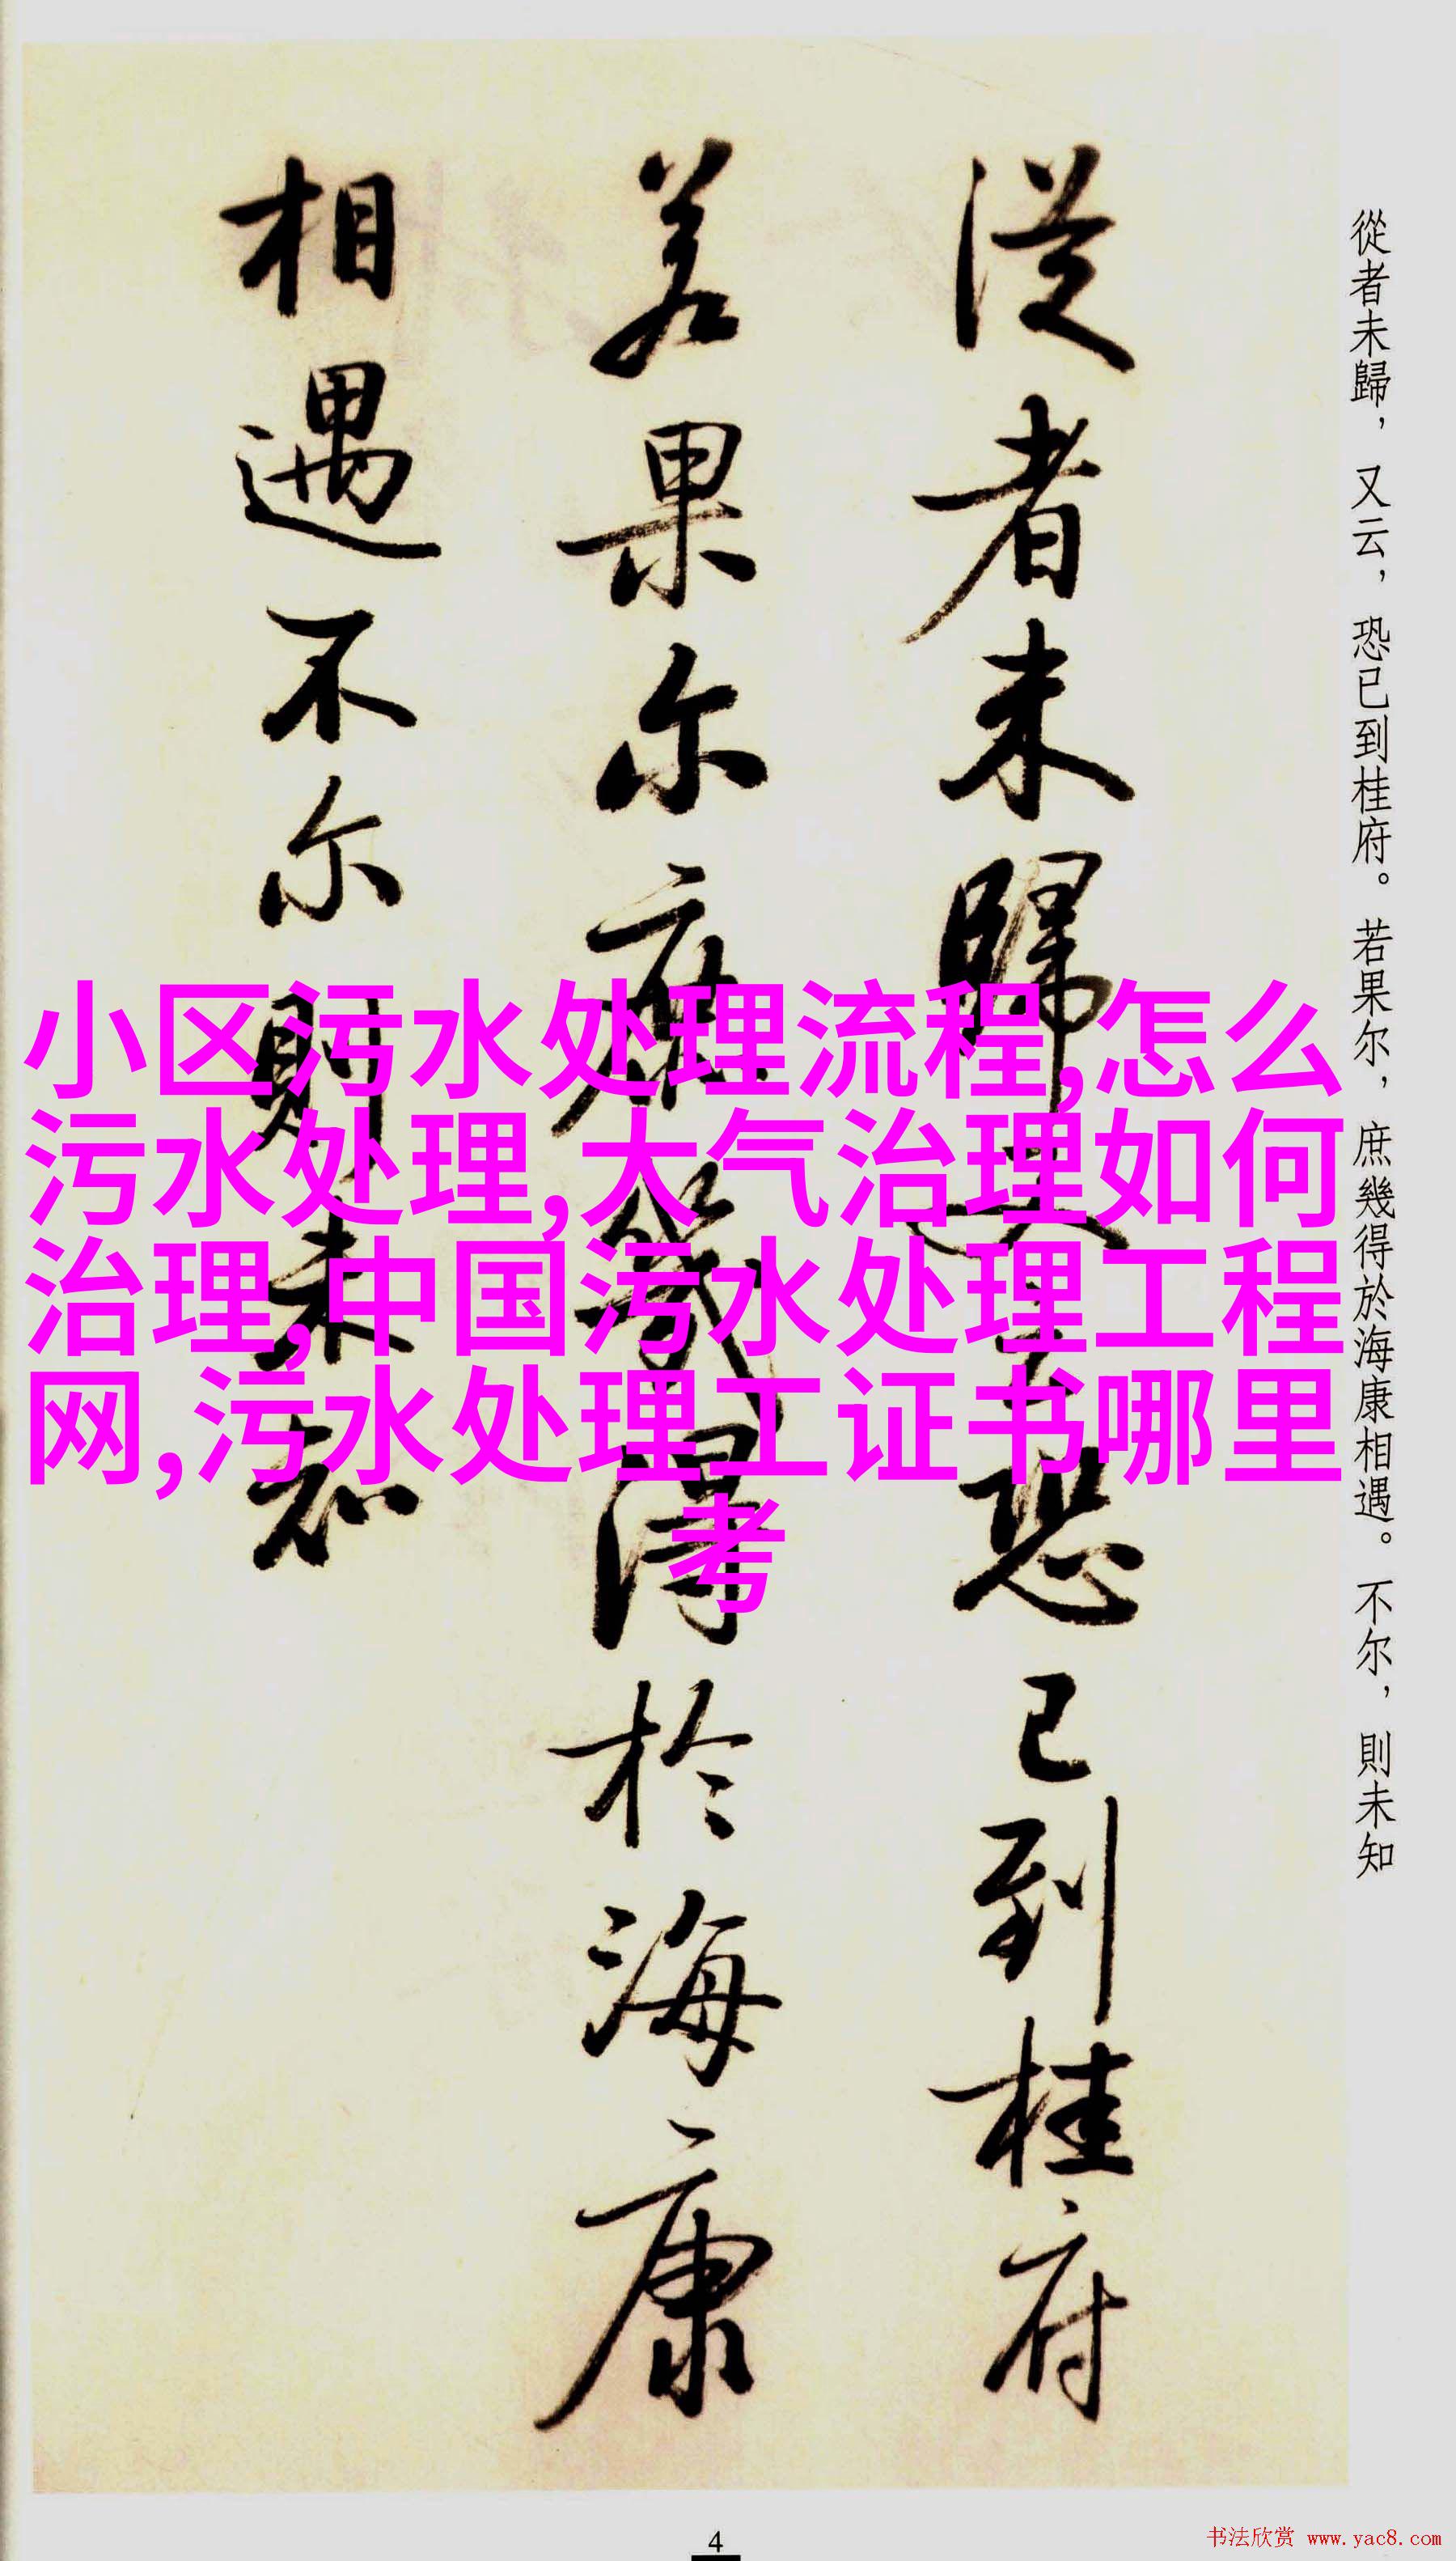 從者未歸，又云，恐已到桂府。若果尔，庶幾得於海康相遇。不尔，則未知
從者未歸又云恐已到桂府
若果尔庶幾得於海康
相遇不尔則未知
小区污水处理流程,怎么
污水处理,大气治理如何
治理,中国污水处理工程
网,污水处理工证书哪里
考
4
书法欣赏 www.yac8.com